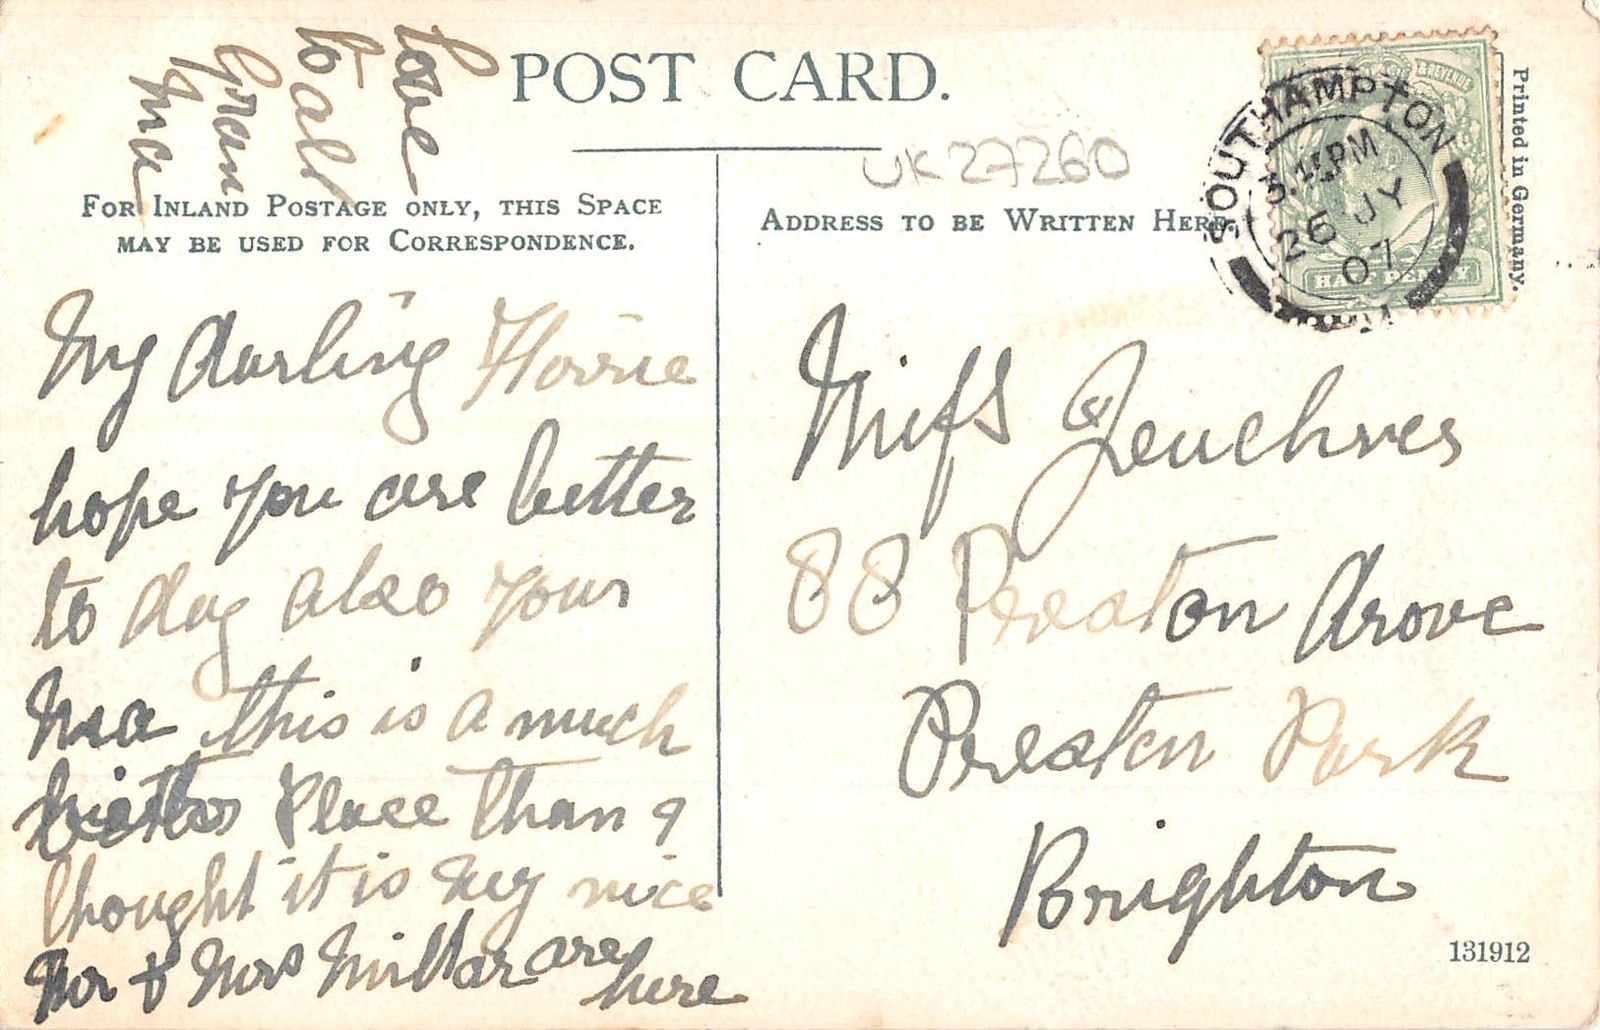 POST CARD.
UK27260
FOR INLAND POSTAGE ONLY, THIS SPACE
MAY BE USED FOR CORRESPONDENCE.
ADDRESS TO BE WRITTEN HERE.
Printed in Germany.
& REVENUE
HALF PENNY
SOUTHAMPTON
3.15PM
26 JY
07
My darling
hope you are better
to day also your
Ma this is a much
better Place than I
thought it is very nice
Mr & Mrs Millar are
here
love
to all
Gran
ma
Miss
88 Preston Drove
Preston Park
Brighton
131912